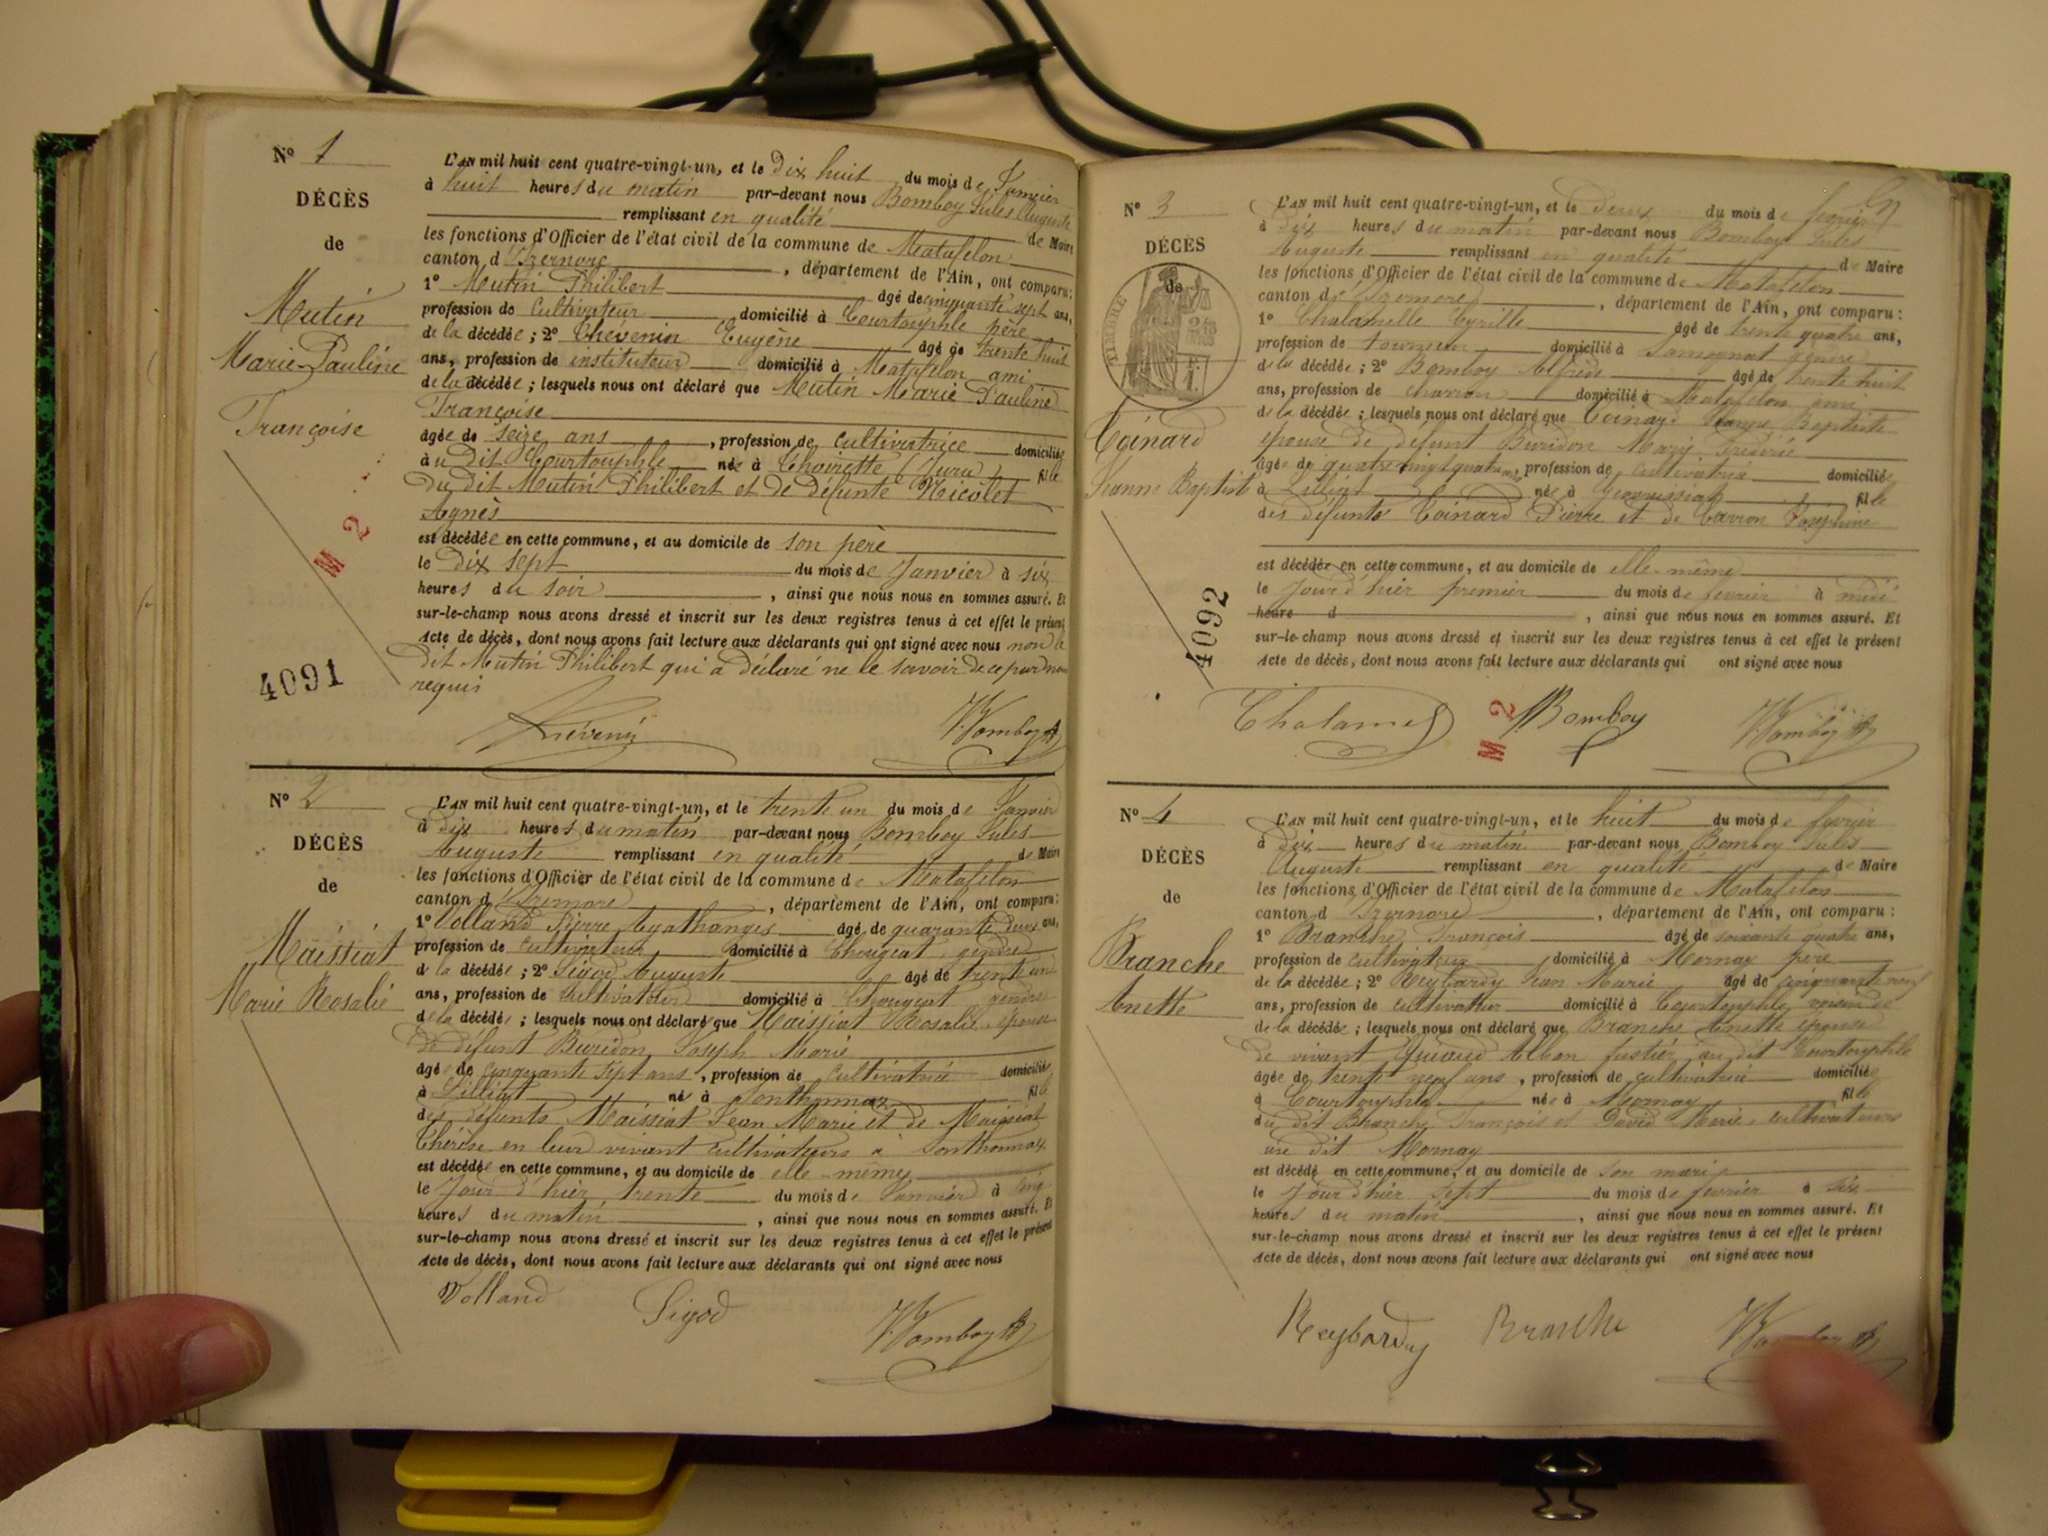 Nº 1
DÉCÈS
de
Mutin
Marie Pauline
Françoise
M 2
4091
L'AN mil huit cent quatre-vingt-un, et le Dix huit du mois de Janvier
à huit heures du matin par-devant nous Bomboy Jules Auguste
remplissant en qualité de Maire
les fonctions d'Officier de l'état civil de la commune de Matafelon
canton d'Izernore, département de l'Ain, ont comparu:
1º Mutin Philibert âgé de cinquante sept ans,
profession de Cultivateur domicilié à Courtouphle père
de la décédée; 2º Thévenin Eugène âgé de trente huit
ans, profession de instituteur domicilié à Matafelon ami
de la décédée; lesquels nous ont déclaré que Mutin Marie Pauline
Françoise
âgée de seize ans, profession de cultivatrice domiciliée
au dit Courtouphle née à Thoirette (Jura) fille
du dit Mutin Philibert et de défunte Nicolet
Agnès
est décédée en cette commune, et au domicile de son père
le Dix sept du mois de Janvier à six
heures du soir, ainsi que nous nous en sommes assuré. Et
sur-le-champ nous avons dressé et inscrit sur les deux registres tenus à cet effet le présent
Acte de décès, dont nous avons fait lecture aux déclarants qui ont signé avec nous non le
dit Mutin Philibert qui a déclaré ne le savoir de ce par nous
requis
Thévenin
Bomboy
Nº 2
DÉCÈS
de
Maissiat
Marie Rosalie
L'AN mil huit cent quatre-vingt-un, et le trente un du mois de Janvier
à Dix heures du matin par-devant nous Bomboy Jules
Auguste remplissant en qualité de Maire
les fonctions d'Officier de l'état civil de la commune de Matafelon
canton d'Izernore, département de l'Ain, ont comparu:
1º Volland Pierre âgé de quarante deux ans,
profession de cultivateur domicilié à Chougeat gendre
de la décédée; 2º Sigod Auguste âgé de trente un
ans, profession de cultivateur domicilié à Chougeat gendre
de la décédée; lesquels nous ont déclaré que Maissiat Rosalie, épouse
de défunt Buridon Joseph Marie
âgée de cinquante sept ans, profession de cultivatrice domiciliée
à Silliat né à Sonthonnax fille
des défunts Maissiat Jean Marie et de Maissiat
Thérèse en leur vivant cultivateurs à Sonthonnax
est décédée en cette commune, et au domicile de elle-même
le Jour d'hier trente du mois de Janvier à cinq
heures du matin, ainsi que nous nous en sommes assuré. Et
sur-le-champ nous avons dressé et inscrit sur les deux registres tenus à cet effet le présent
Acte de décès, dont nous avons fait lecture aux déclarants qui ont signé avec nous
Volland Sigod Bomboy
Nº 3
DÉCÈS
de
TIMBRE
Coinard
Jeanne Baptiste
4092
L'AN mil huit cent quatre-vingt-un, et le deux du mois de février
à dix heures du matin par-devant nous Bomboy Jules
Auguste remplissant en qualité de Maire
les fonctions d'Officier de l'état civil de la commune de Matafelon
canton d'Izernore, département de l'Ain, ont comparu:
1º Chalamelle Cyrille âgé de trente quatre ans,
profession de tourneur domicilié à Samognat gendre
de la décédée; 2º Bomboy Alfred âgé de trente huit
ans, profession de charron domicilié à Matafelon ami
de la décédée; lesquels nous ont déclaré que Coinard Jeanne Baptiste
épouse de défunt Buridon Marie Frédéric
âgée de quatre vingt quatre ans, profession de cultivatrice domiciliée
à Silliat née à fille
des défunts Coinard Pierre et de Cavron Joséphine
est décédée en cette commune, et au domicile de elle-même
le Jour d'hier premier du mois de février à midi
heure d, ainsi que nous nous en sommes assuré. Et
sur-le-champ nous avons dressé et inscrit sur les deux registres tenus à cet effet le présent
Acte de décès, dont nous avons fait lecture aux déclarants qui ont signé avec nous
Chalamel M 2 Bomboy Bomboy
Nº 4
DÉCÈS
de
Branche
Anette
L'AN mil huit cent quatre-vingt-un, et le huit du mois de février
à Dix heures du matin par-devant nous Bomboy Jules
Auguste remplissant en qualité de Maire
les fonctions d'Officier de l'état civil de la commune de Matafelon
canton d Izernore, département de l'Ain, ont comparu:
1º Branche François âgé de soixante quatre ans,
profession de cultivateur domicilié à Mornay père
de la décédée; 2º Reybardy Jean Marie âgé de cinquante neuf
ans, profession de cultivateur domicilié à Courtouphle
de la décédée; lesquels nous ont déclaré que Branche Anette épouse
de vivant Alban au dit Courtouphle
âgée de trente neuf ans, profession de cultivatrice domiciliée
à Courtouphle née à Mornay fille
du dit Branche François et David Marie, cultivateurs
au dit Mornay
est décédé en cette commune, et au domicile de son mari
le Jour d'hier sept du mois de février à six
heures du matin, ainsi que nous nous en sommes assuré. Et
sur-le-champ nous avons dressé et inscrit sur les deux registres tenus à cet effet le présent
Acte de décès, dont nous avons fait lecture aux déclarants qui ont signé avec nous
Reybardy Branche